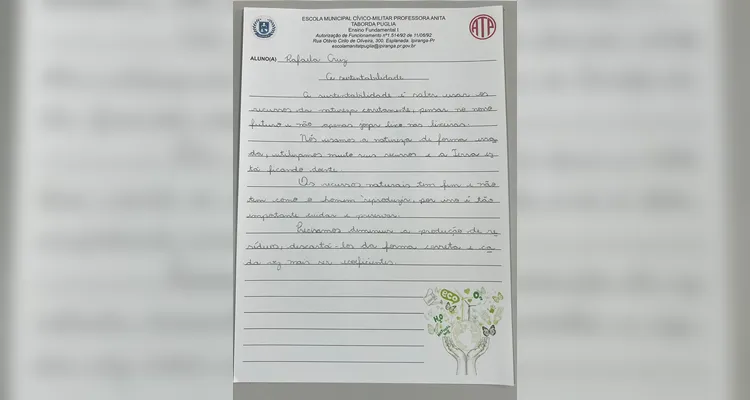 ESCOLA MUNICIPAL CÍVICO-MILITAR PROFESSORA ANITA
TABORDA PUGLIA
Ensino Fundamental I
Autorização de Funcionamento nº1.514/92 de 11/06/92
Rua Otávio Cirilo de Oliveira, 300, Esplanada. Ipiranga-Pr
escolamanitalpuglia@ipiranga.pr.gov.br
ATP
ALUNO(A) Rafaela Cruz
A sustentabilidade
A sustentabilidade é saber usar os
recursos da natureza corretamente, pensar no nosso
futuro e não apenas jogar lixo nas lixeiras.
Nós usamos a natureza de forma erra
da, utilizamos muito seus recursos e a Terra es
tá ficando doente.
Os recursos naturais tem fim e não
tem como o homem reproduzir, por isso é tão
importante cuidar e preservar.
Precisamos diminuir a produção de re
síduos, descartá-los da forma correta e ca
da vez mais ser ecoeficientes.
eco
O₂
H₂O